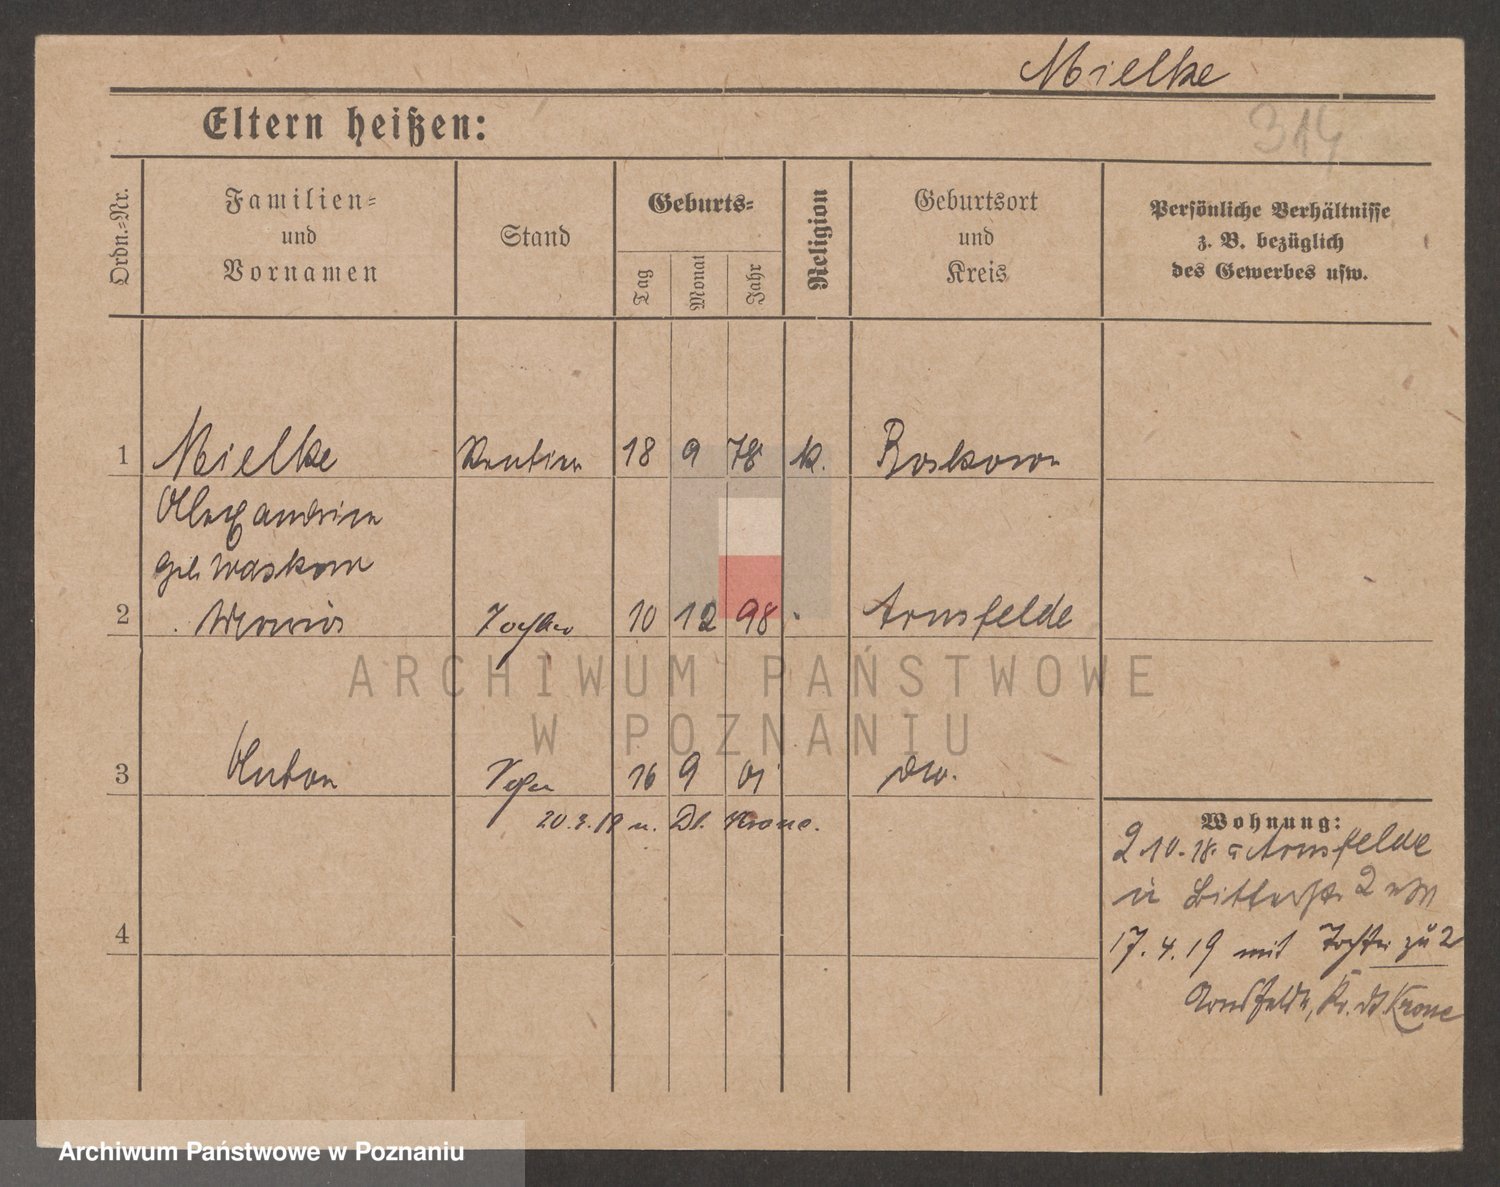 Mielke
Eltern heißen:
314
Ordn.-Nr.
Familien-
und
Vornamen
Stand
Geburts-
Tag
Monat
Jahr
Religion
Geburtsort
und
Kreis
Persönliche Verhältnisse
z. B. bezüglich
des Gewerbes usw.
1 Mielke 18 9 78 k.
Alexandrine
geb.
2 Tochter 10 12 98 Arnsfelde
ARCHIWUM PAŃSTWOWE
W POZNANIU
3 Anton 16 9 01 do.
20.3.19 n. Dt. Krone.
Wohnung:
2.10.18. Arnsfelde
2
4
17.4.19 mit Tochter zu 2
Arnsfelde, Kr. Dt. Krone
Archiwum Państwowe w Poznaniu